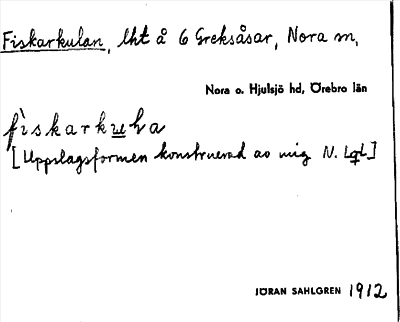 Fiskarkulan, lht å 6 Greksåsar, Nora m,
Nora o. Hjulsjö hd, Örebro län
fìskarkuɫa
[Uppslagsformen konstruerad av mig N. Lqt.]
JÖRAN SAHLGREN 1912